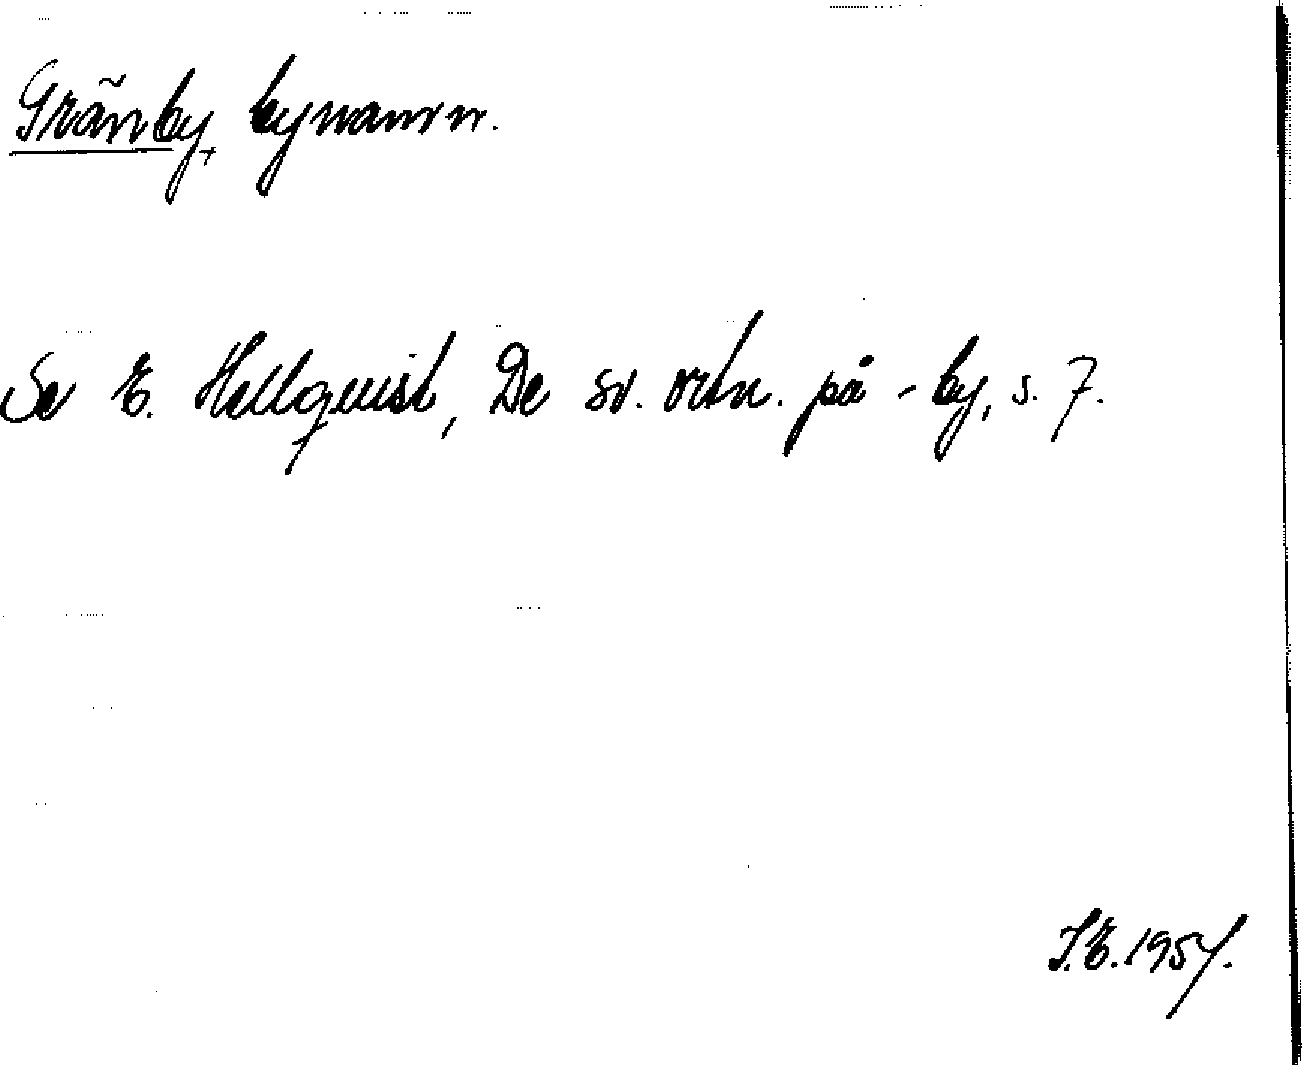 Gränby, bynamn.
Se E. Hellquist, De sv. ortn. på -by, s. 7.
S.E. 1957.